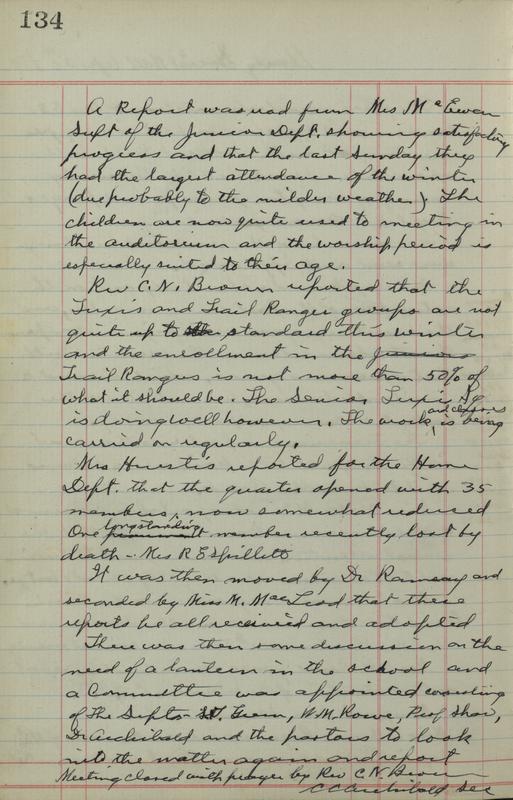 134
A Report was read from Mrs McEwen
Supt of the Junior Dept. showing satisfactory
progress and that the last Sunday they
had the largest attendance of the winter
(due probably to the milder weather). The
children are now quite used to meeting in
the auditorium and the worship period is
especially suited to their age.
Rev C. N. Brown reported that the
Tuxis and Trail Ranger groups are not
quite up to standard this winter
and the enrollment in the juniors
Trail Rangers is not more than 50% of
what it should be. The Senior Tuxis Sq
is doing well however. The work and classes is being
carried on regularly.
Mrs Huestis reported for the Home
Dept. that the quarter opened with 35
members, now somewhat reduced
One longstanding member recently lost by
death - Mrs R E Spillett
It was then moved by Dr Ramsay and
seconded by Miss M. MacLeod that these
reports be all received and adopted
There was then some discussion on the
need of a lantern in the school and
a Committee was appointed consisting
of The Supts - Green, W.M. Rowe, Prof Shaw,
Dr Archibald and the pastors to look
into the matter again and report
Meeting closed with prayer by Rev C N Brown
C C Archibald Sec